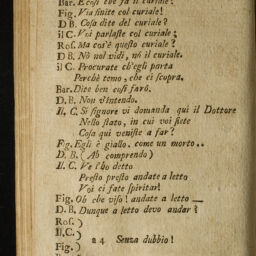 Bar. E così che fà il curiale?
Fig. Via finite col curiale!
D B. Cosa dite del curiale?
il C. Voi parlaste col curiale;
Ros. Ma cos'è questo curiale?
D B. Nò nol vidi, nò il curiale.
il C. Procurate ch'egli parta
Perchè temo, che ci scopra.
Bar. Dite ben così farò.
D. B. Non v'intendo.
Il. C. Sì signore vi domanda qui il Dottore
Nello stato, in cui voi siete
Cosa qui veniste a far?
Fig. Egli è giallo. come un morto..
D. B. (Ah comprendo)
Il. C. Ve l'ho detto
Presto presto andate a letto
Voi ci fate spiritar!
Fig. Oh che viso! andate a letto __
D. B. Dunque a letto devo andar?
Ros. )
Il.C. )
a 4 Senza dubbio!
Fig. )